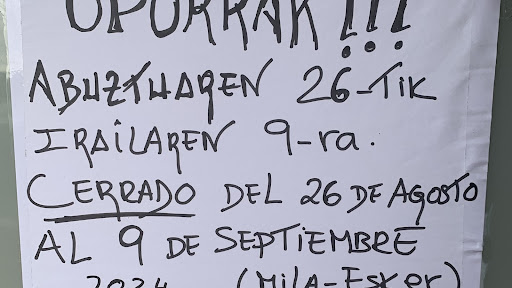 OPORRAK!!!
ABUZTUAREN 26-TIK
IRAILAREN 9-ra.
CERRADO DEL 26 DE AGOSTO
AL 9 DE SEPTIEMBRE
2024 (MILA-ESKER)